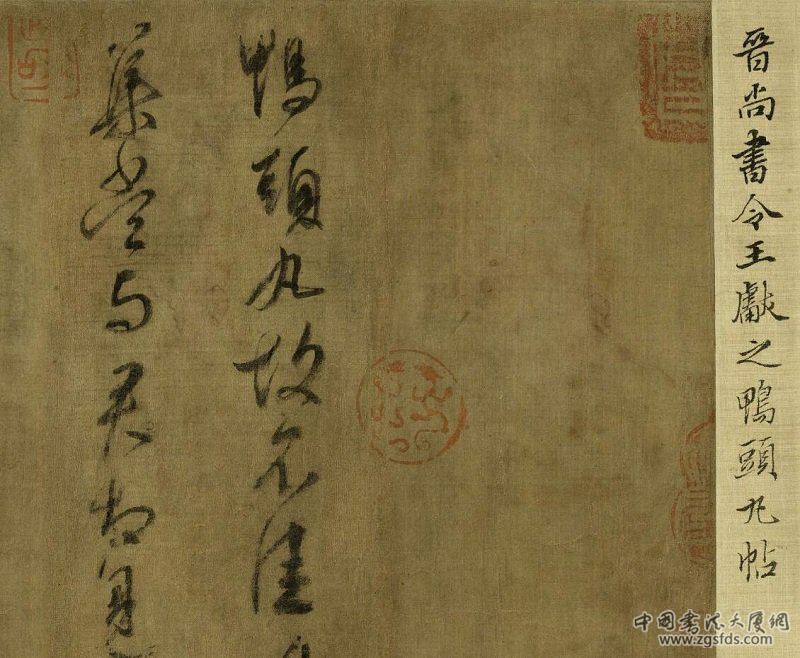 晉尚書令王獻之鴨頭丸帖
鴨頭丸故不佳
集當與君相見
中國書法大廈網
www.zgsfds.com